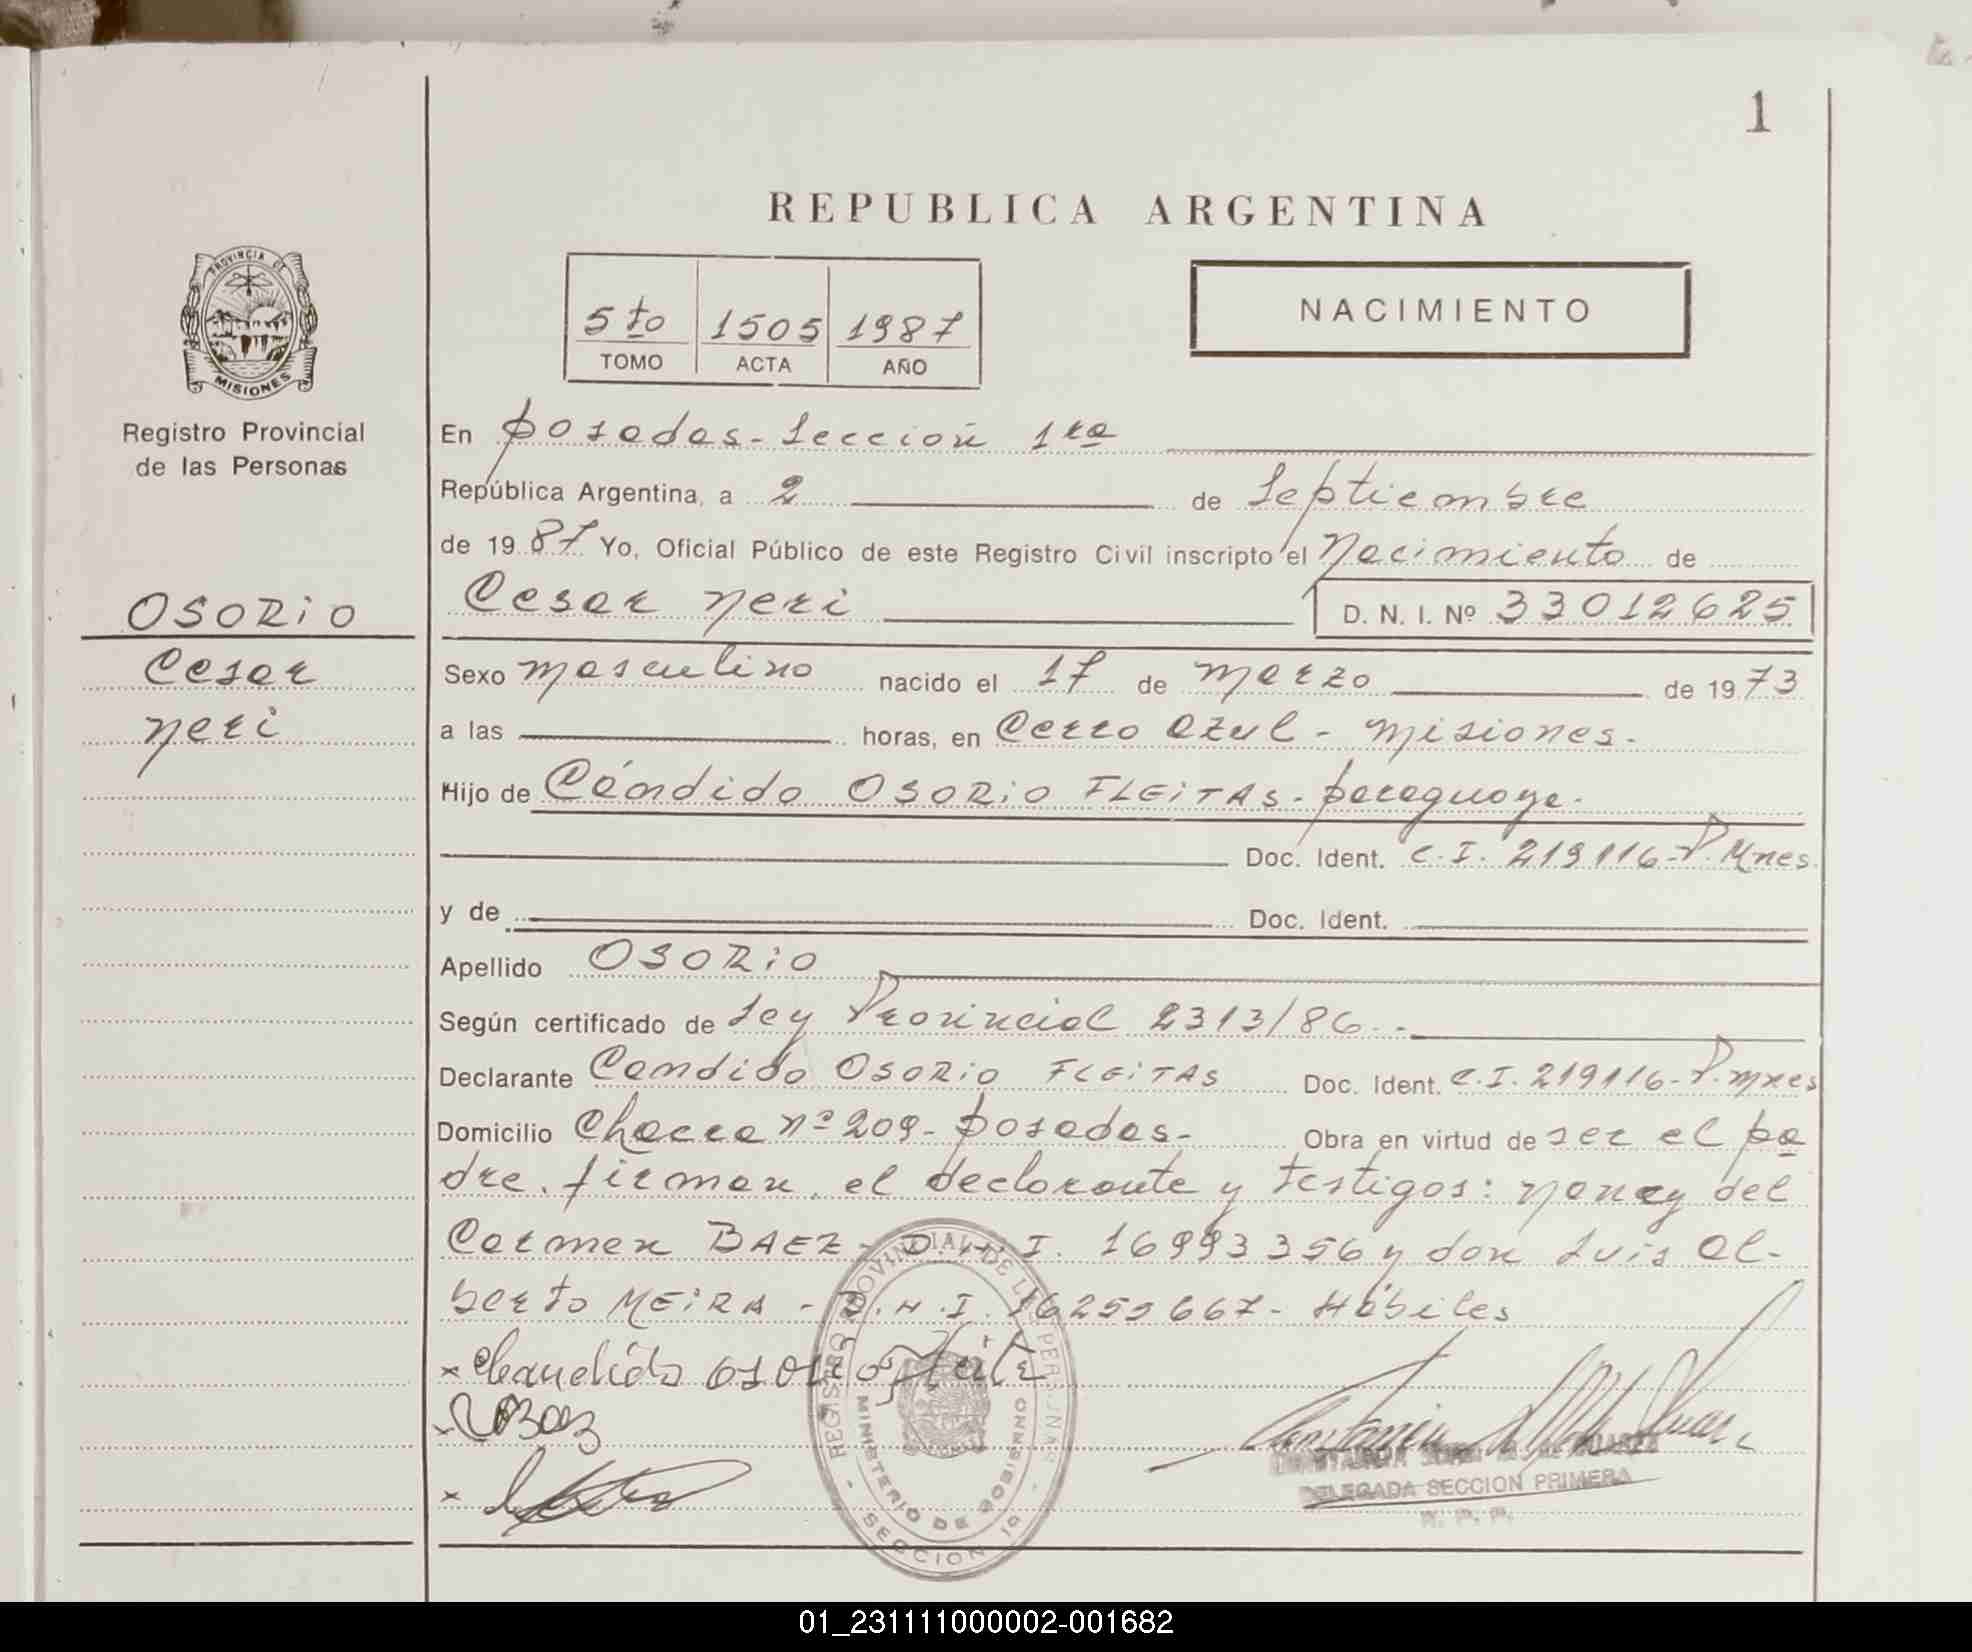 1
REPUBLICA ARGENTINA
PROVINCIA DE
MISIONES
Registro Provincial
de las Personas
5to 1505 1987
TOMO ACTA AÑO
NACIMIENTO
En Posadas - Sección 1ra
República Argentina, a 2 de Septiembre
de 1987 Yo, Oficial Público de este Registro Civil inscripto el Nacimiento de
OSORiO
Cesar Neri
Cesar Neri D. N. I. Nº 33012625
Sexo masculino nacido el 17 de marzo de 1973
a las horas, en Cerro Azul - Misiones.
Hijo de Cándido OSORiO FLEiTAS - paraguaya.
Doc. Ident. C.I. 219116-P. Mnes.
y de Doc. Ident.
Apellido OSORiO
Según certificado de Ley Provincial 2313/86.-
Declarante Candido OSORiO FLEiTAS Doc. Ident. C.I. 219116-P. Mnes
Domicilio Chacra nº 209- Posadas- Obra en virtud de ser el pa
dre. firman, el declarante y testigos: Nancy del
Carmen BAEZ - D.N.I. 16993356 y don Luis Al-
berto MEiRA - D.N.I. 16255667 - Hábiles
x Candido Osorio
x
x
REGISTRO PROVINCIAL DE LAS PERSONAS
MINISTERIO DE GOBIERNO
- SECCION 1º -
DELEGADA SECCION PRIMERA
R. P. P.
01_231111000002-001682